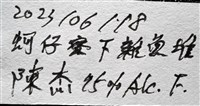 2023/06/18
蚵仔寮下雜魚堆
陳杰 95% Alc. F.